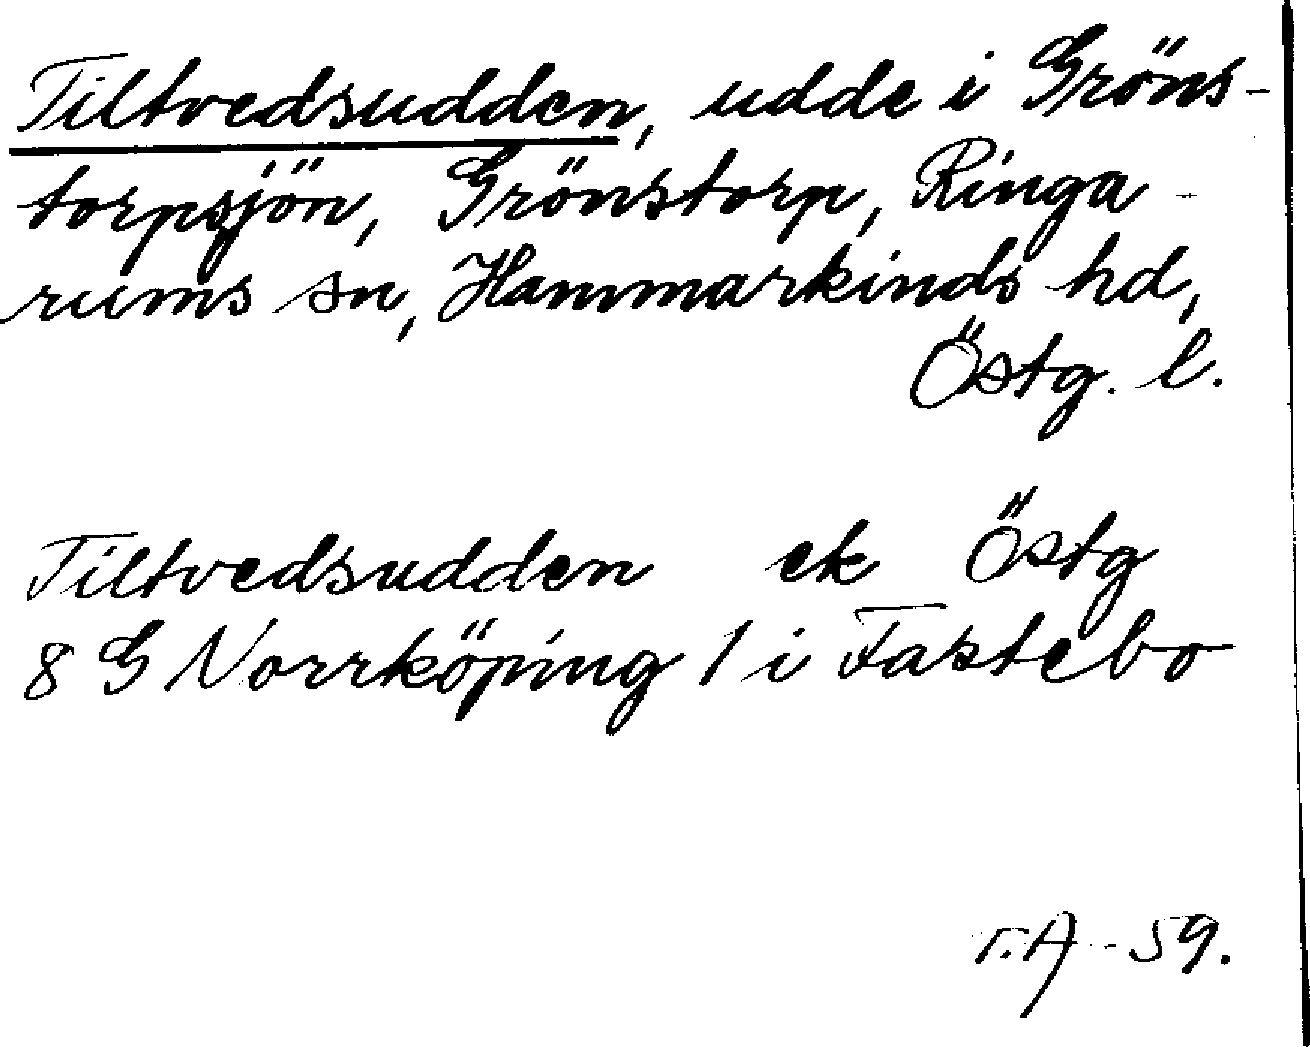 Tiltvedsudden, udde i Gröns-
torpsjön, Grönstorp, Ringa-
rums sn, Hammarkinds hd,
Östg. l.
Tiltvedsudden ek Östg
8 G Norrköping 1 i Fastebo
T.A -59.